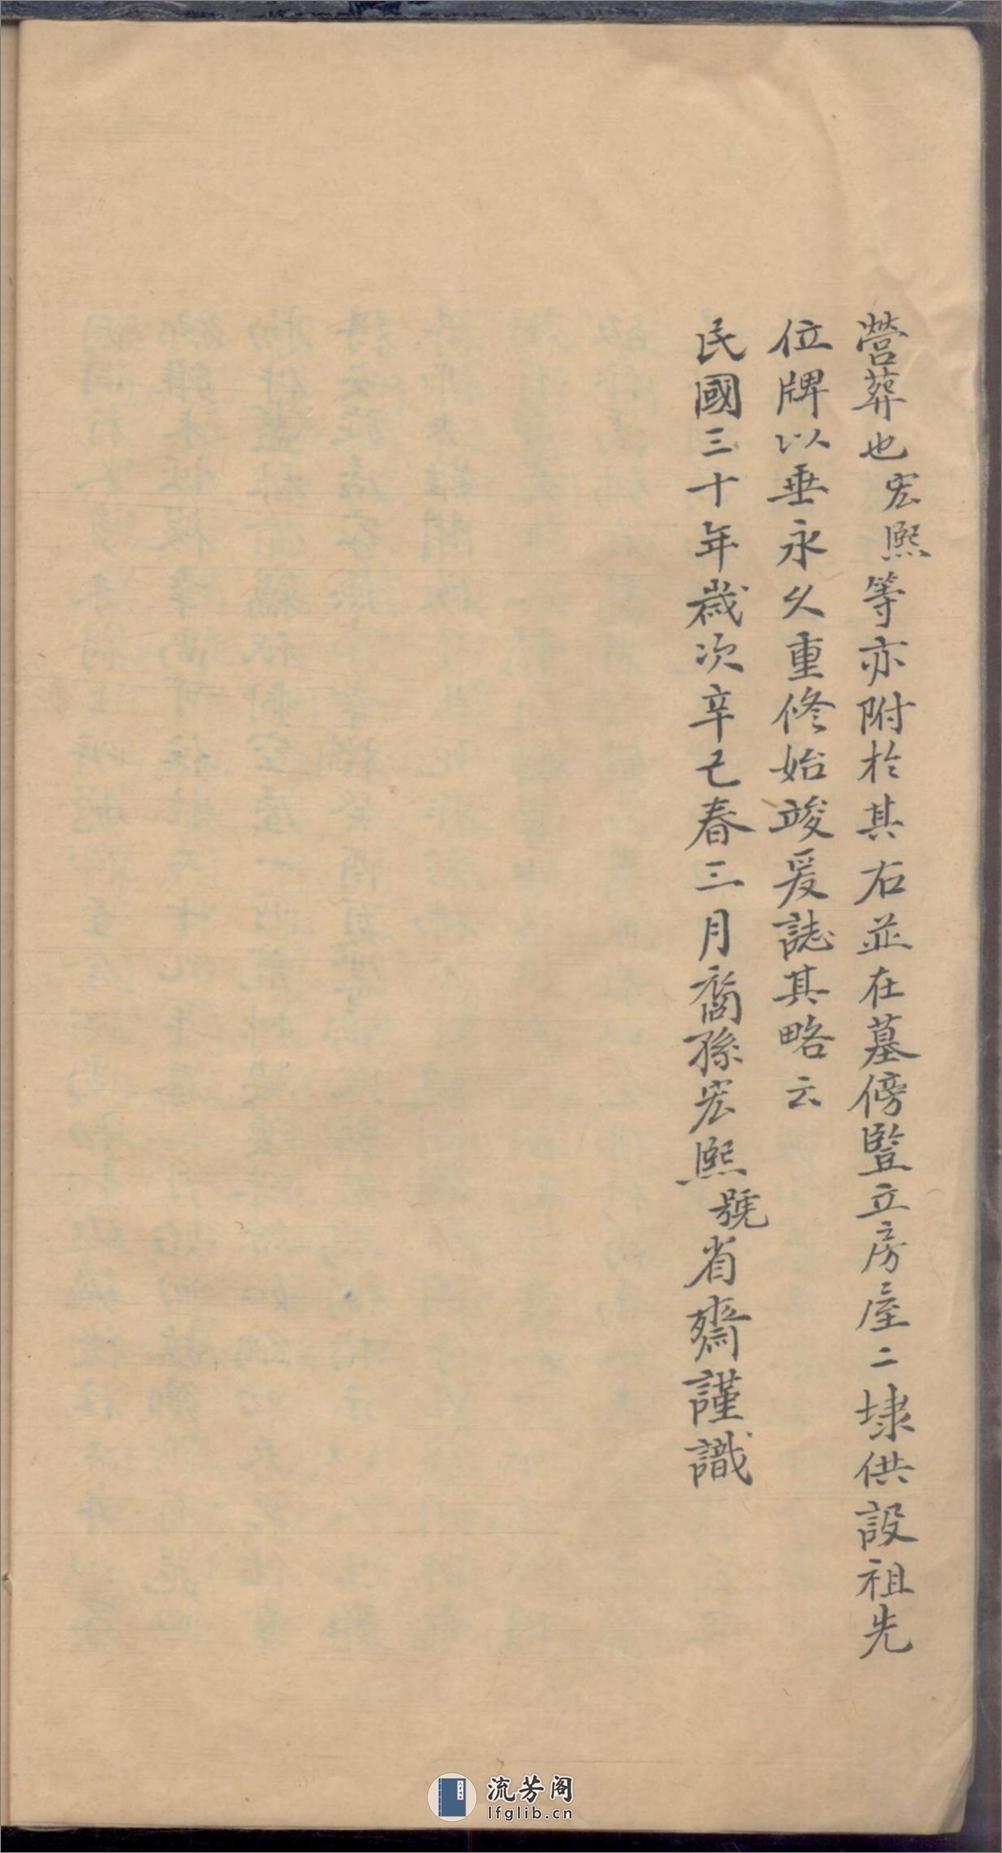 營葬也宏熙等亦附於其右並在墓傍豎立房屋二埭供設祖先
位牌以垂永久重修始竣爰誌其略云
民國三十年歲次辛巳春三月裔孫宏熙號省齋謹識
流芳阁
lfglib.cn